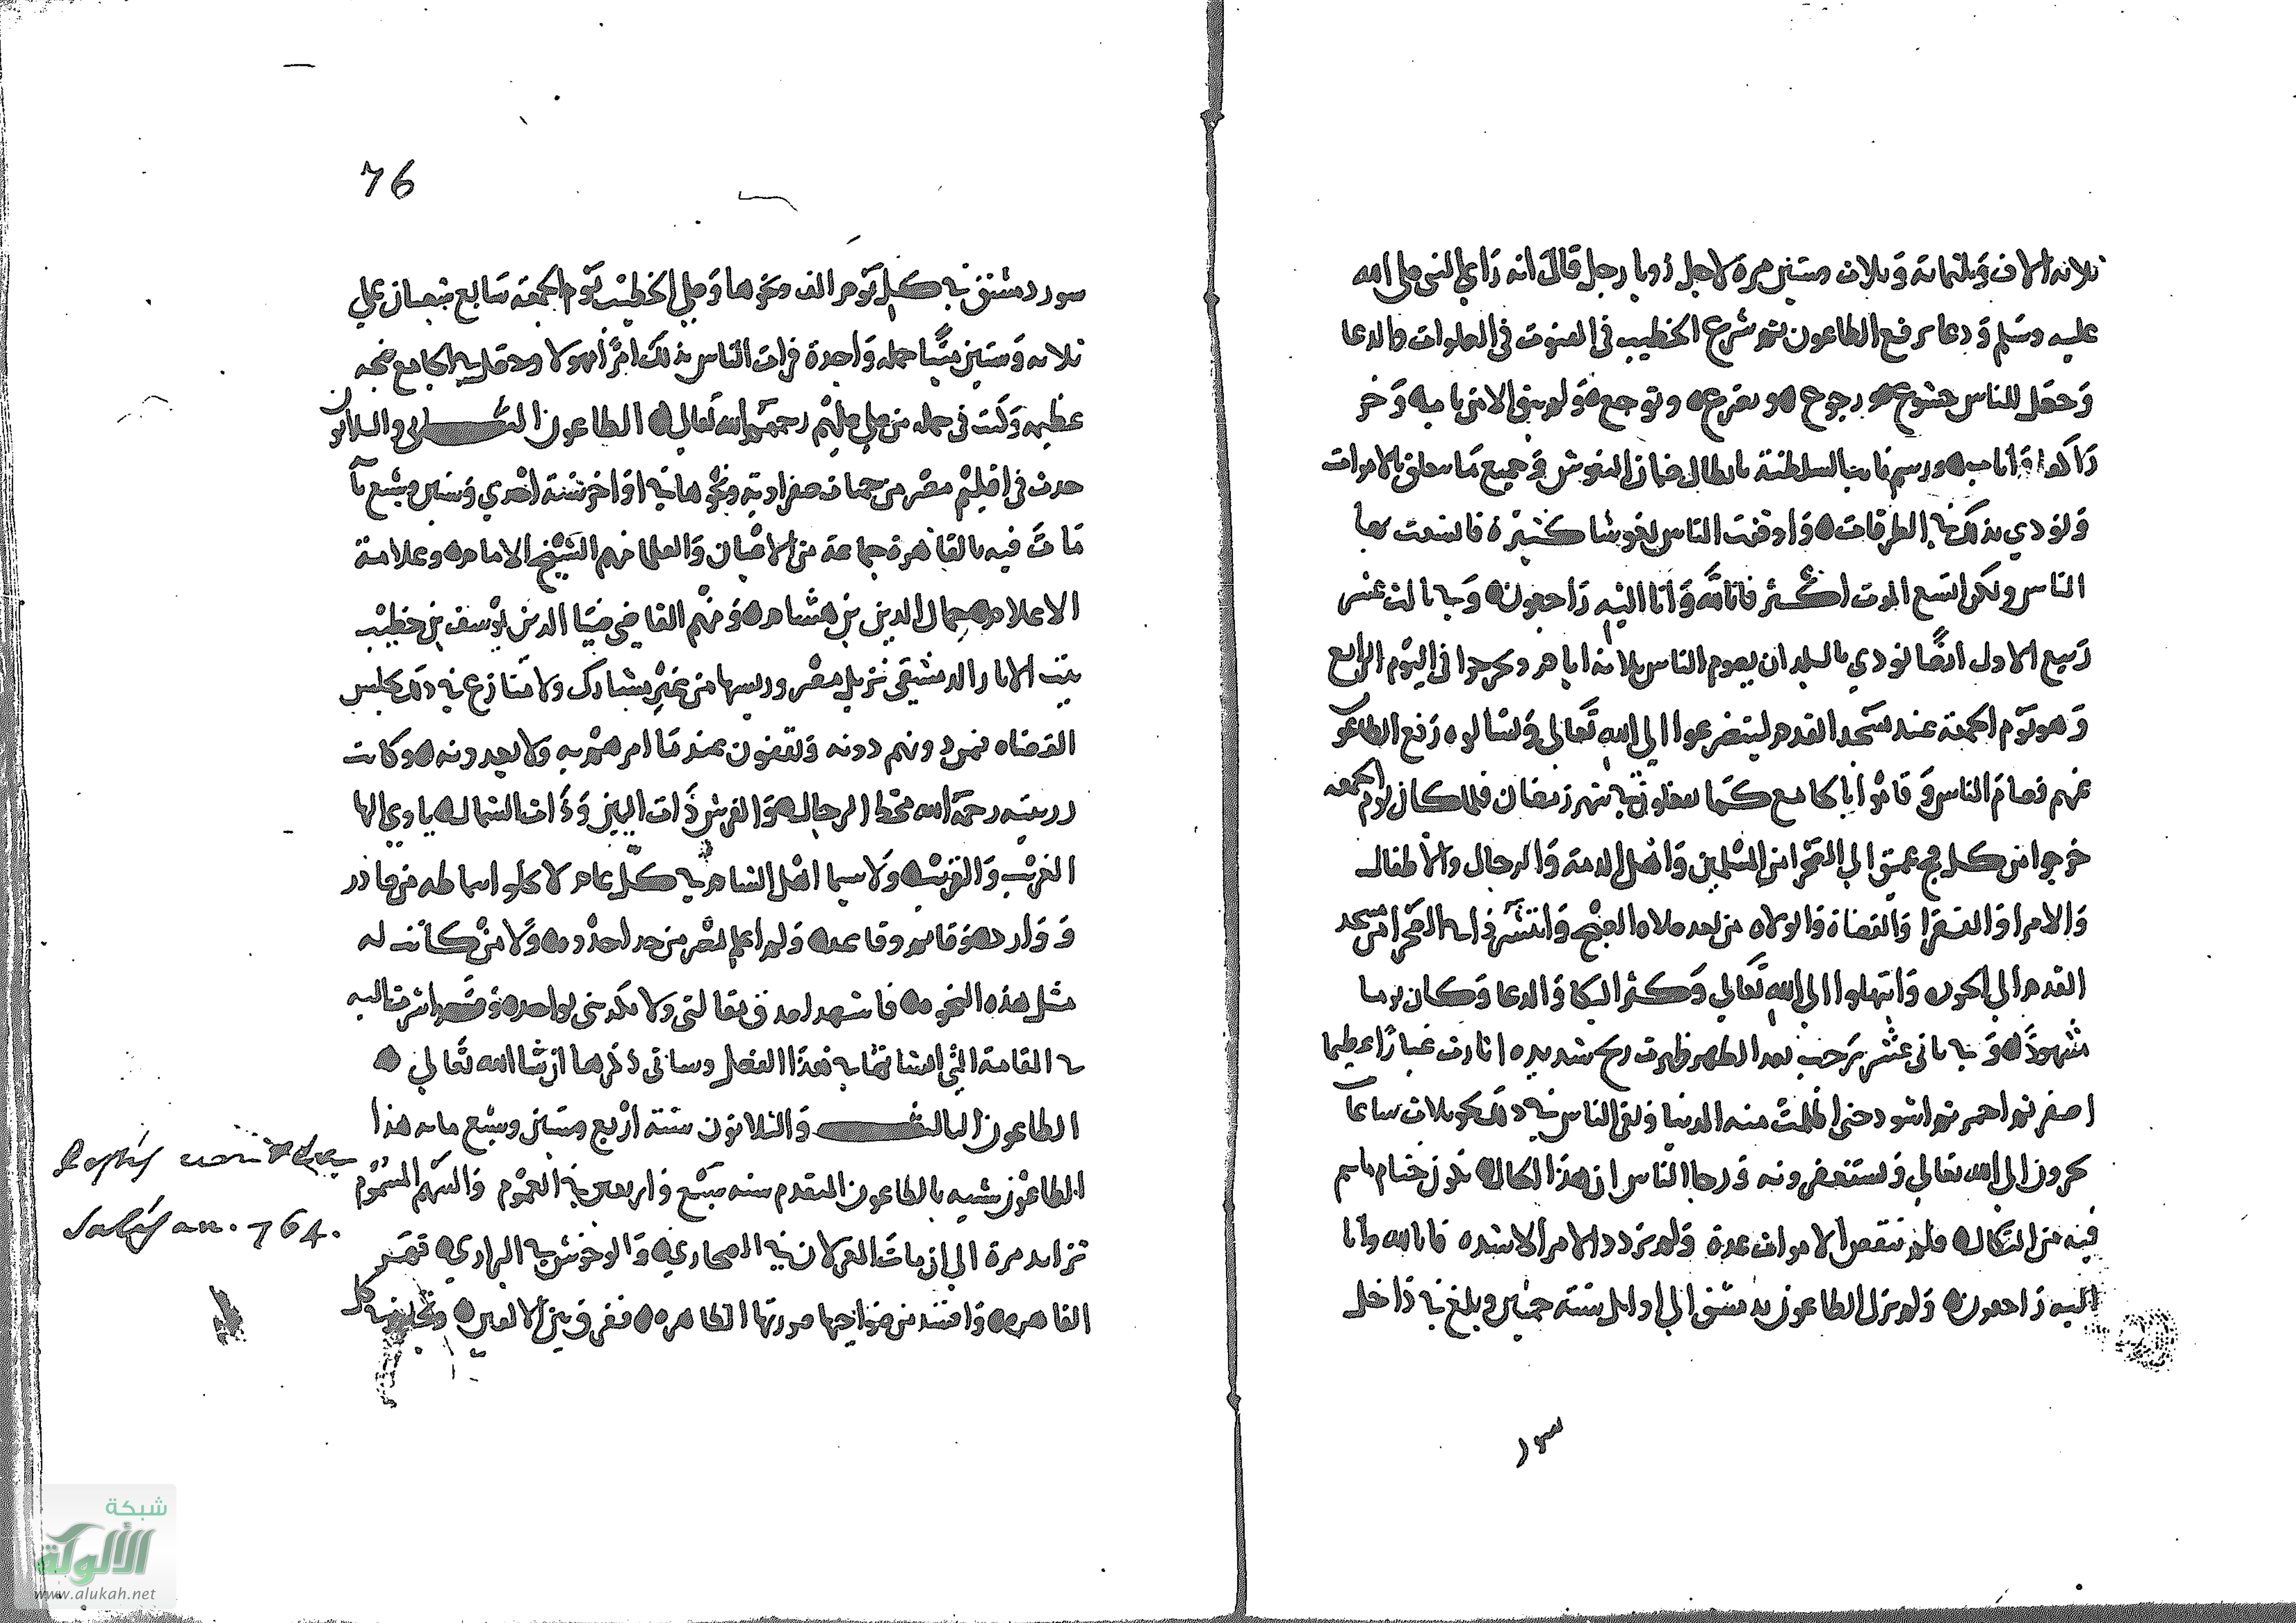 ثلاثة الاف وثلثماية وثلاث وستين مرة لاجل رويا رجل قال انه راي النبي صلي الله
عليه وسلم ودعا برفع الطاعون ثم شرع الخطيب في القنوت في الصلوات والدعا
وحصل للناس خشوع ورجوع وتضرع وتوجع ولم يبق الا من
ورسم نايب السلطنة بابطال ضمان النعوش وجميع ما يتعلق بالاموات
ونودي بذلك في الطرقات واوقفت الناس نعوشا كثيرة فاتسعت بها
الناس ولكن اتسع الموت اكثر فانا لله وانا اليه راجعون وفي ثالث عشر
ربيع الاول ايضا نودي بالبلد ان يصوم الناس ثلاثة ايام ويخرجوا في اليوم الرابع
وهو يوم الجمعة عند مسجد القدم ليتضرعوا الي الله تعالي ويسالوه رفع الطاعون
عنهم فصام الناس وقاموا بالجامع كما يفعلون في شهر رمضان فلما كان يوم الجمعه
خرجوا من كل فج عميق الي الصحرا من المسلمين واهل الذمة والرجال والاطفال
والامرا والفقرا والقضاة والولاه من بعد صلاه الصبح وانتشر ذلك في الصحرا من مسجد
القدم الي وابتهلوا الي الله تعالي وكثر البكا والدعا وكان يوما
مشهودا وفي ثاني عشر رجب بعد الظهر ظهرت ريح شديده اثارت غبارا عظيما
اصفر ثم احمر ثم اسود حتي اظلمت منه الدنيا وبقي الناس في ذلك نحو ثلاث ساعات
يجرون الي الله تعالي ويستغفرونه ورجا الناس ان هذا الحال يكون ختام ما هم
فيه من النكال فلم تنقص الاموات عدة ولم يزدد الامر الا شده فانا لله وانا
اليه راجعون ولم يزل الطاعون بدمشق الي اوايل سنة خمسين وبلغ في داخل
سور
76
سور دمشق في كل يوم الف ونحوها وصلي الخطيب يوم الجمعة سابع شعبان علي
ثلاثه وستين ميتا جمله واحدة فرات الناس بذلك امرا مهولا وحصل في الجامع ضجه
عظيمه وكنت في جمله من صلي عليهم رحمهم الله تعالي الطاعون الثاني والثلاثون
حدث في اقليم مصر من حميات صفراوية ونحوها في اواخر سنة احدي وستين وسبع ماية
مات فيه بالقاهرة جماعة من الاعيان والعلما منهم الشيخ الامام وعلامة
الاعلام جمال الدين بن هشام ومنهم القاضي ضيا الدين يوسف بن خطيب
بيت الابار الدمشقي نزيل مصر ورييسها من غير مشارك ولا منازع في ذلك يجلس
القضاه دونه ويقفون عند ما امرهم به ولا يعدونه وكانت
رحمه الله محط الرحال والفرش ذات اليمين وذات الشمال ياوي اليها
الغريب والقريب ولا سيما اهل الشام في كل عام لا تخلو اسماطه من صادر
ووارد وقايم وقاعد ولم اعلم بمصر من حد احذو ولا من كانت له
مثل هذه النخوه فاشهد لصدق مقالتي ولا تكذبني بواحد وقد اشرت اليه
في المقامة التي انشاتها في هذا الفصل وساتي ذكرها ان شا الله تعالي
الطاعون الثالث والثلاثون سنة اربع وستين وسبع مايه هذا
الطاعون شبيه بالطاعون المتقدم سنه تسع واربعين في العموم والسهم المسموم
تزايد مرة الي ان مات الغزلان في الصحاري والوحوش في البراري قهر
القاهره وافسد من مزاجها صورتها الظاهره ففرق بين الالفين كل
an. 764.
شبكة
الألوكة
www.alukah.net